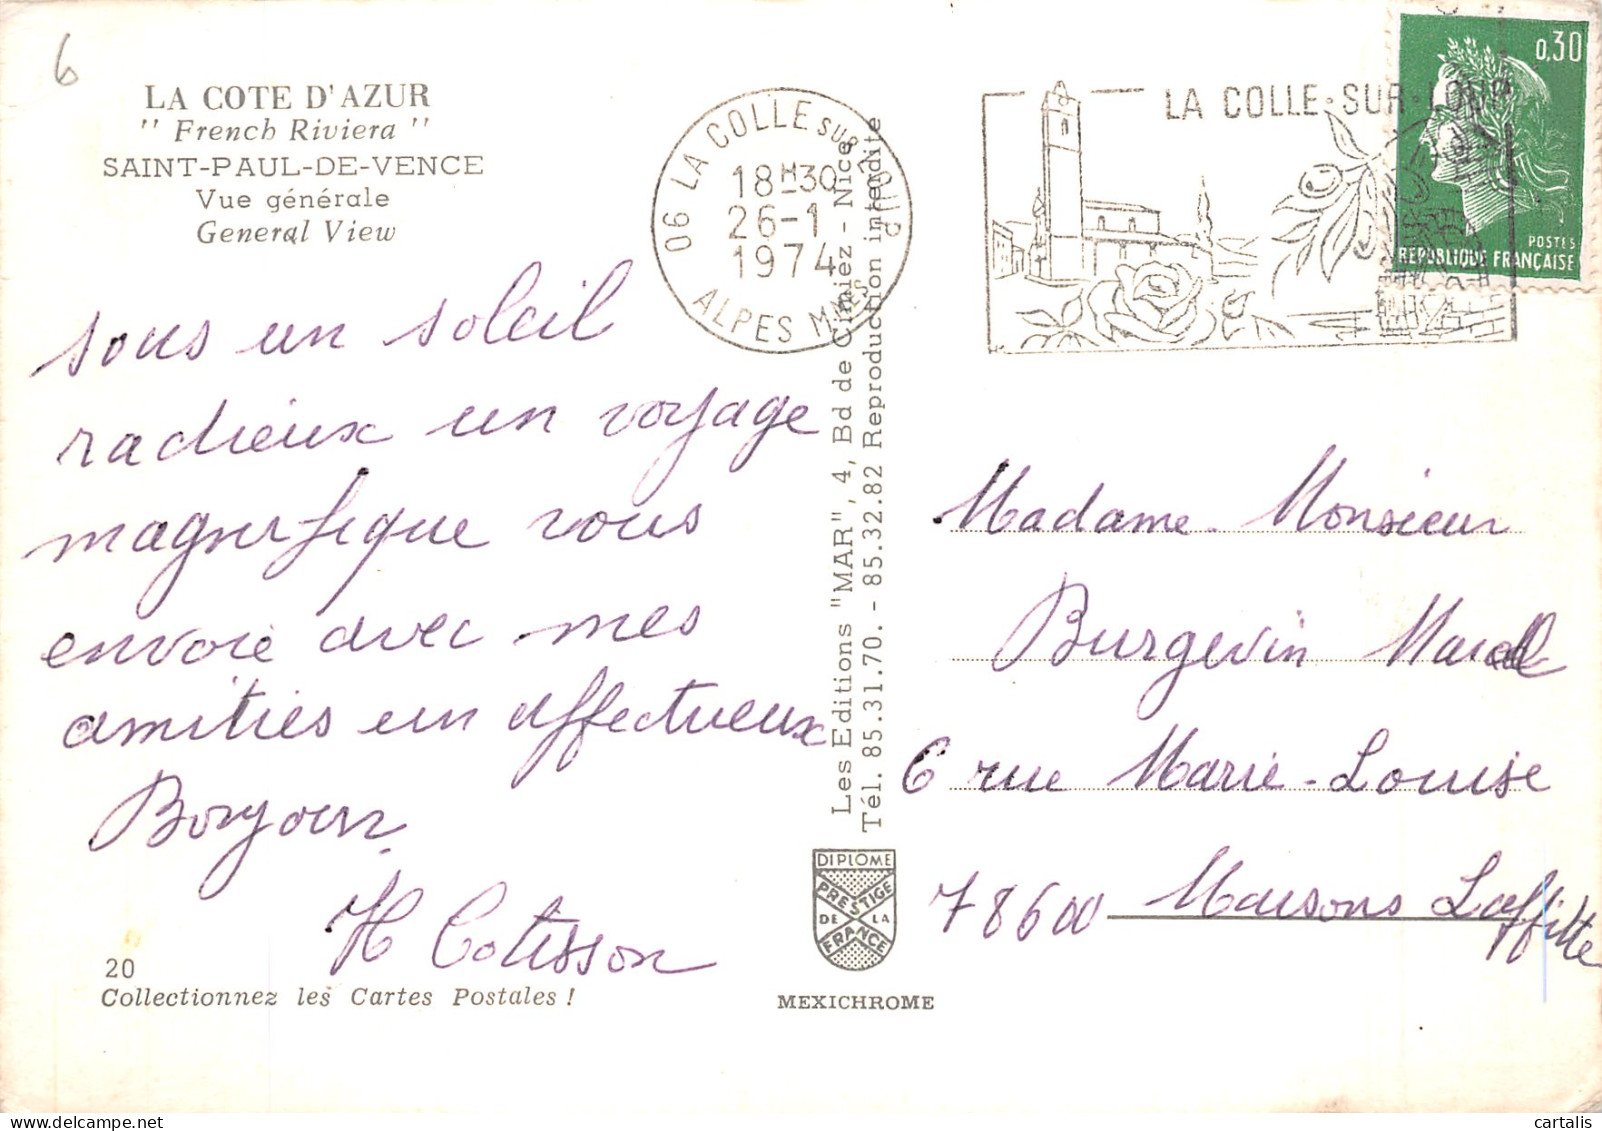 6
LA COTE D'AZUR
" French Riviera "
SAINT-PAUL-DE-VENCE
Vue générale
General View
sous un soleil
radieux un voyage
magnifique vous
envoie avec mes
amitiés un affectueux
Bonjour
20
Collectionnez les Cartes Postales !
06 LA COLLE SUR LOUP
18H30
26-1
1974
ALPES MMES
Les Editions "MAR", 4, Bd de Cimiez - Nice
Tél. 85.31.70. - 85.32.82 Reproduction interdite
DIPLOME
PRESTIGE
DE LA
FRANCE
MEXICHROME
LA COLLE·SUR·LOUP
0,30
POSTES
REPUBLIQUE FRANÇAISE
Madame Monsieur
Burgevin Marcel
6 rue Marie-Louise
78600 Maisons Laffitte
© cartalis
delcampe.net